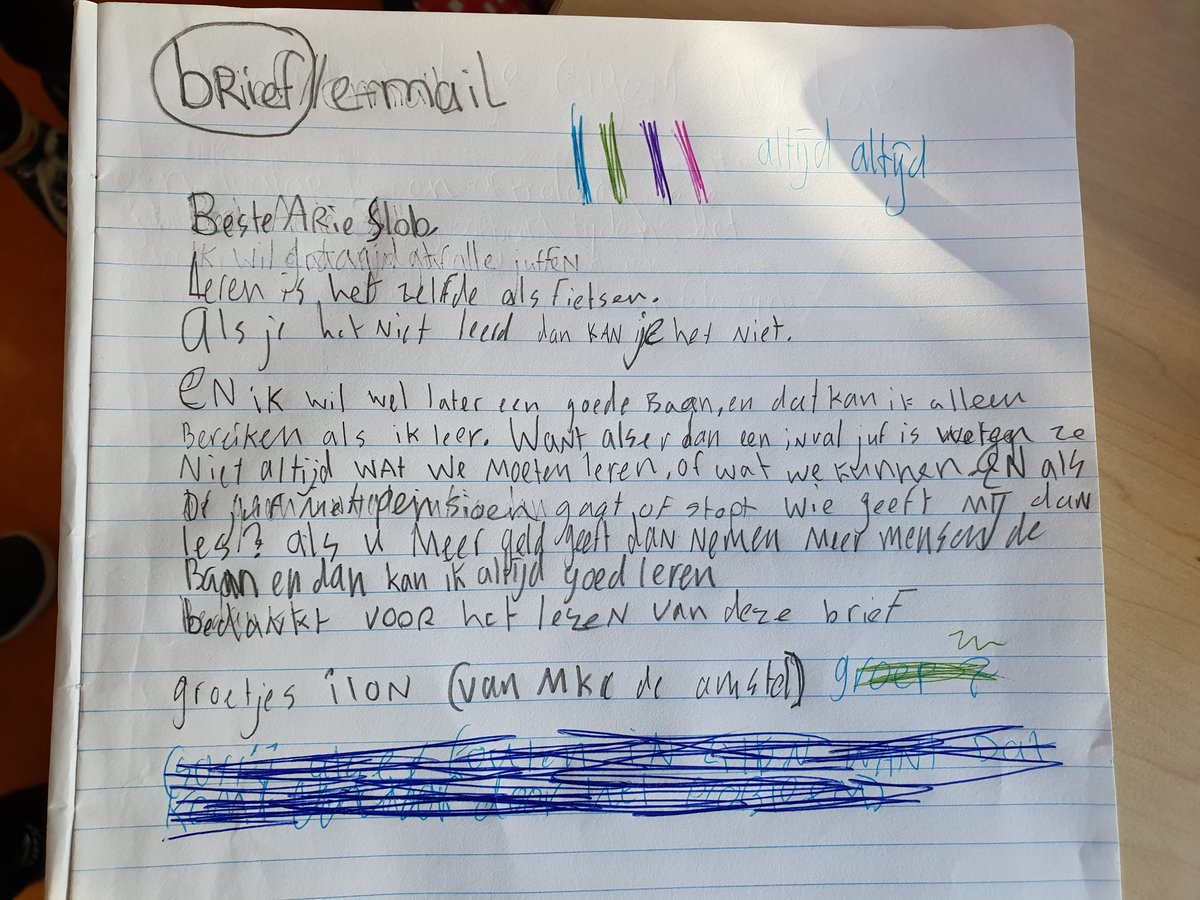 brief/email
altijd altijd
Beste Arie Slob
ik wil dat alle juffen
Leren is het zelfde als fietsen.
Als je het niet leerd dan kan je het niet.
EN ik wil wel later een goede Baan, en dat kan ik alleen
Bereiken als ik leer. Want als er dan een inval juf is weten ze
Niet altijd wat we moeten leren, of wat we kunnen. EN als
De met pensioen gaat of stopt wie geeft mij dan
les? als u meer geld geeft dan nemen meer mensen de
Baan en dan kan ik altijd goed leren
Bedankt voor het lezen van deze brief
groetjes ilon (van MKC de amstel) groep